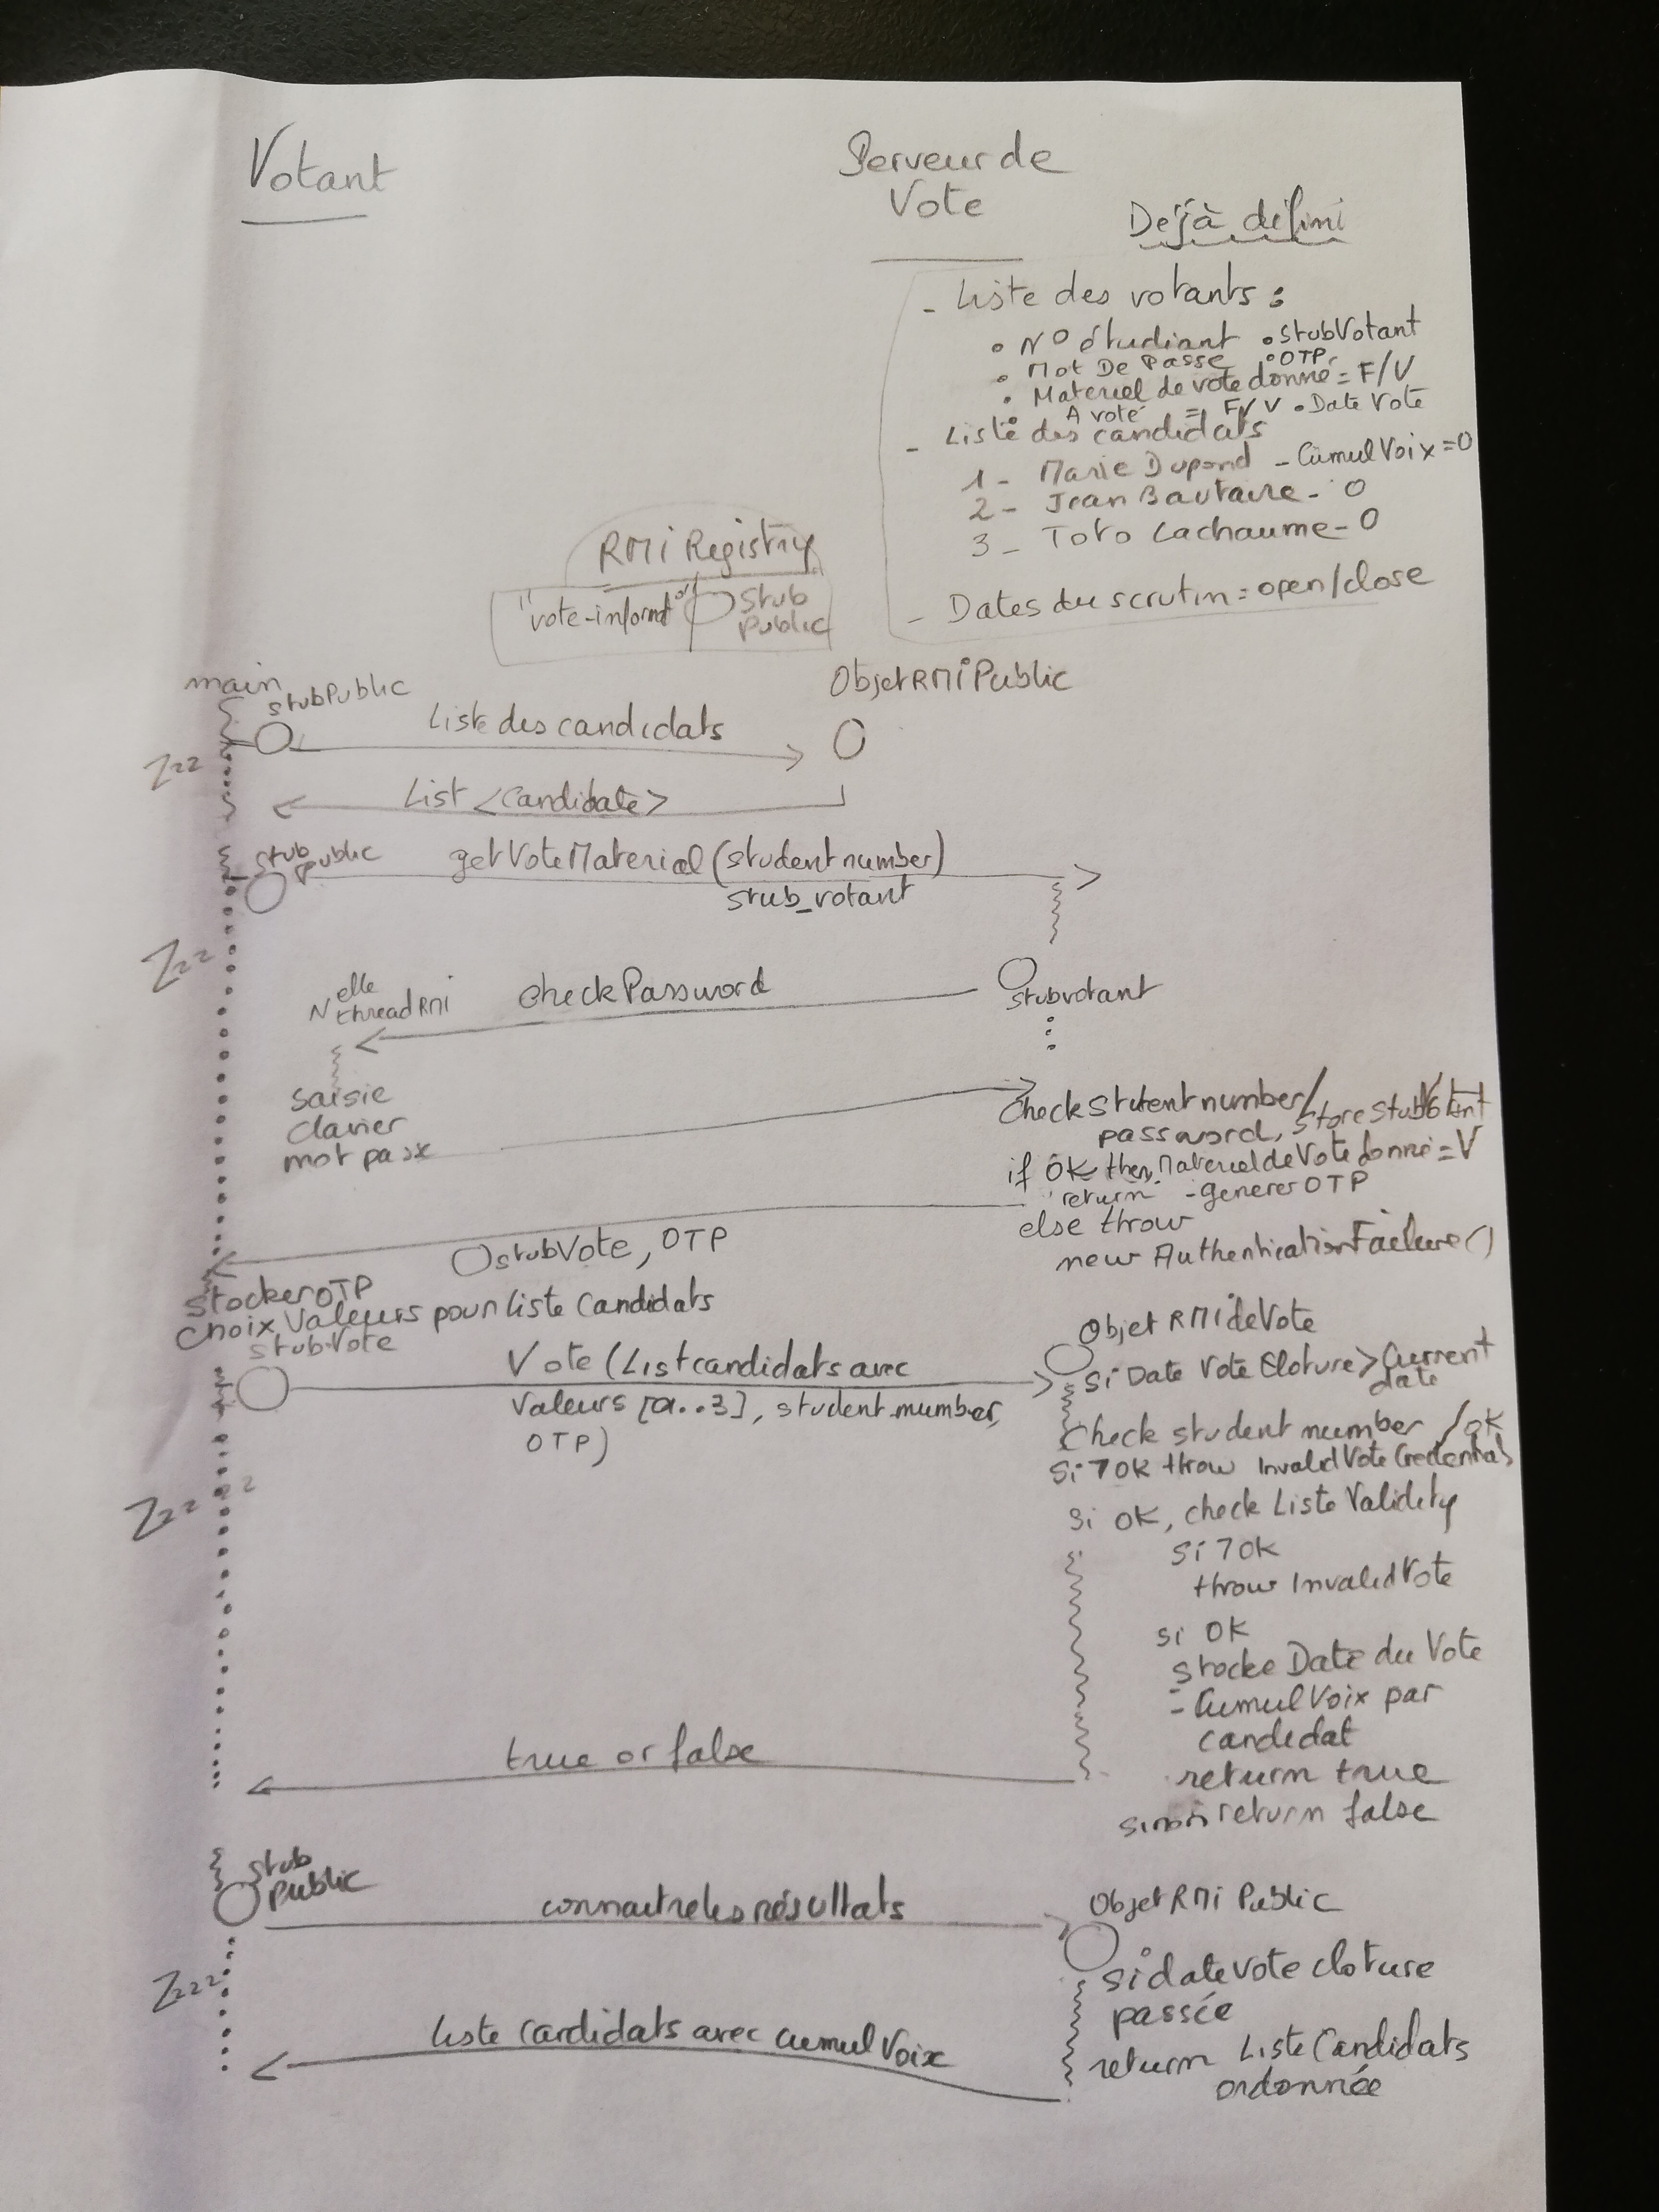 Votant
Serveur de
Vote
Déjà défini
- Liste des votants :
• N° étudiant • StubVotant
• Mot De Passe • OTP,
• Materiel de vote donné = F/V
• A voté = F/V • Date Vote
- Liste des candidats
1 - Marie Dupond - CumulVoix = 0
2 - Jean Bautaire - 0
3 - Toto Lachaume - 0
- Dates du scrutin = open/close
RMI Registry
"vote-informat°"
Stub
Public
main
stubPublic
ObjetRMIPublic
Liste des candidats
Zzz
List <Candidate>
stub
public
getVoteMaterial (student number)
stub_votant
Zzz
Nelle
thread RMI
checkPassword
stubvotant
saisie
clavier
mot passe
Check student number/
password, store stubVotant
if OK then, Materiel de Vote donné = V
return - generer OTP
else throw
new AuthenticationFailure()
stubVote, OTP
Stocker OTP
Choix Valeurs pour liste Candidats
stubVote
Objet RMI de Vote
Vote (List candidats avec
Valeurs [0..3], student number,
OTP)
Si Date Vote Cloture > Current
date
Check student number / OK
Si ¬OK throw InvalidVoteCredentials
Zzz
si OK, check Liste Validity
si ¬OK
throw InvalidVote
si OK
stocke Date du Vote
- CumulVoix par
candidat
return true
sinon return false
true or false
stub
public
connaitre les résultats
Objet RMI Public
si date vote cloture
passée
return Liste Candidats
ordonnée
Zzz
liste candidats avec cumul Voix